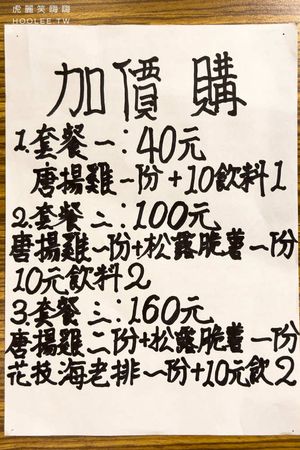 虎麗笑嗨嗨
HOOLEE.TW
加價購
1.套餐一:40元
唐揚雞一份+10飲料1
2.套餐二:100元
唐揚雞一份+松露脆薯一份
10元飲料2
3.套餐三:160元
唐揚雞二份+松露脆薯一份
花枝海老排一份+10元飲2